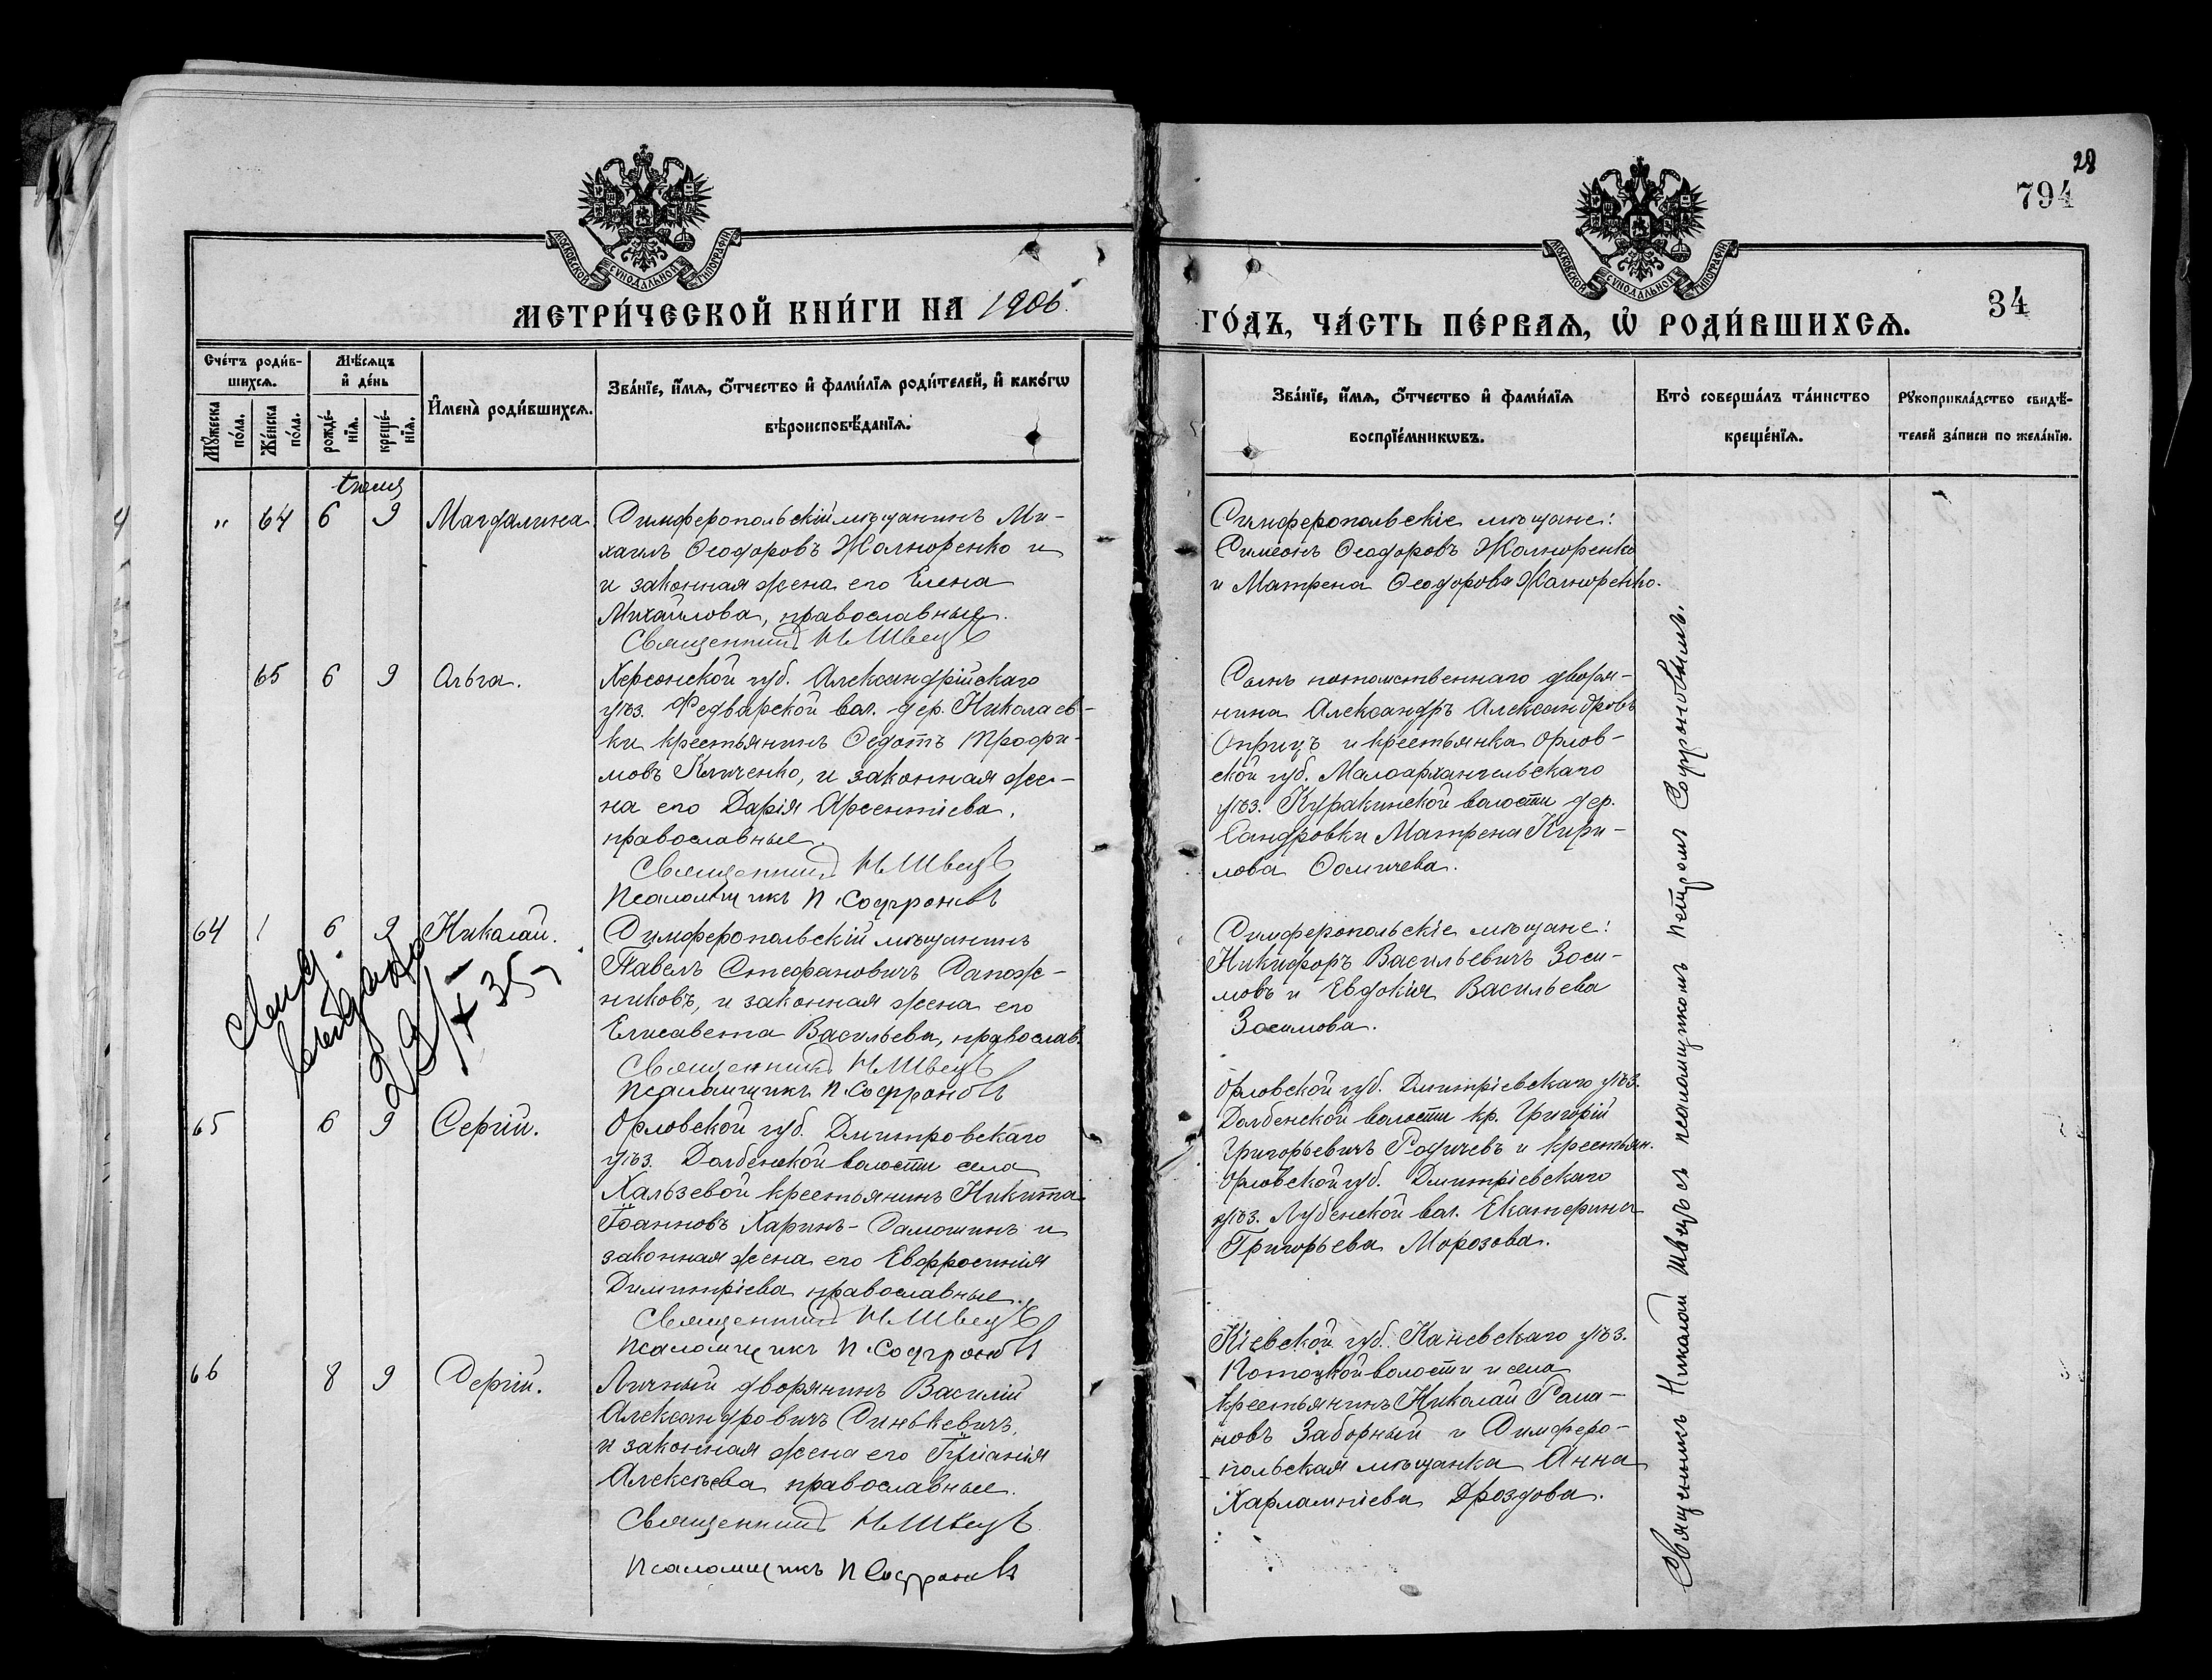 28
794
34
МОСКОВСКОЙ СѴНОДАЛЬНОЙ ТИПОГРАФІИ
МОСКОВСКОЙ СѴНОДАЛЬНОЙ ТИПОГРАФІИ
МЕТРИ́ЧЕСКОЙ КНИ́ГИ НА 1906.
ГО́ДЪ, ЧА́СТЬ ПЕ́РВАЯ, Ѽ РОДИ́ВШИХСЯ.
Сче́тъ роди́в-
шихся.
Мѣ́сяцъ
и҆ де́нь
Мꙋ́жеска
по́ла.
Же́нска
по́ла.
рожде́-
нїя.
креще́-
нїя.
И҆мена̀ роди́вшихся.
Зва́нїе, и҆́мя, о҆́тчество и҆ фами́лїя роди́телей, и҆ како́гѡ
вѣроисповѣ́данїя.
Зва́нїе, и҆́мя, о҆́тчество и҆ фами́лїя
воспрїе́мникѡвъ.
Кто̀ соверша́лъ та́инство
креще́нїя.
Рꙋкоприкла́дство свидѣ́-
телей за́писи по жела́нїю.
" 64 6 9 Магдалина
Симферопольскій мѣщанинъ Ми-
хаилъ Ѳеодоровъ Жолнѳренко и
и законная жена его Елена
Михайлова, православные.
Священникъ Н. Швецъ
Симферопольскіе мѣщане:
Симеонъ Ѳеодоровъ Жолнюренко
и Матрена Ѳеодорова Жолнюренко.
65 6 9 Ольга.
Херсонской губ. Александрійскаго
уѣз. Федварской вол. дер. Николаев-
ки крестьянинъ Ѳедотъ Трофи-
мовъ Кличенко, и законная же-
на его Дарія Арсентіева,
православные.
Священникъ Н. Швецъ
Псаломщикъ П. Софроновъ
Сынъ потомственнаго дворя-
нина Александръ Александровъ
Оприцъ и крестьянка Орлов-
ской губ. Малоархангельскаго
уѣз. Куракинской волости дер.
Сандровки Матрена Кири-
лова Ѳомичева.
64 6 9 Николай.
Симферопольскій мѣщанинъ
Павелъ Стефановичъ Сапож-
никовъ, и законная жена его
Елисавета Васильева, православ.
Священникъ Н. Швецъ
Псаломщикъ П. Софроновъ
Симферопольскіе мѣщане:
Никифоръ Васильевичъ Зоси-
мовъ и Евдокія Васильева
Зосимова.
35
65 6 9 Сергій.
Орловской губ. Дмитровскаго
уѣз. Долбенской волости села
Хальзевой крестьянинъ Никита
Іоанновъ Харинъ-Самошинъ и
законная жена его Евфросинія
Димитріева православные.
Священникъ Н. Швецъ
Псаломщикъ П. Софроновъ
Орловской губ. Дмитріевскаго уѣз.
Долбенской волости кр. Григорій
Григорьевичъ Родичевъ и крестьян.
Орловской губ. Дмитріевскаго
уѣз. Лубенской вол. Екатерина
Григорьева Морозова.
66 8 9 Сергій.
Личный дворянинъ Василій
Александровичъ Синькевичъ,
и законная жена его Іуліанія
Алексѣева православные.
Священникъ Н. Швецъ
Псаломщикъ П. Софроновъ
Кіевской губ. Каневскаго уѣз.
Потоцкой волости и села
крестьянинъ Николай Рома-
новъ Заборный и Симферо-
польская мѣщанка Анна
Харлампіева Дроздова.
Священникъ Николай Швецъ съ псаломщикомъ Петромъ Софроновымъ.